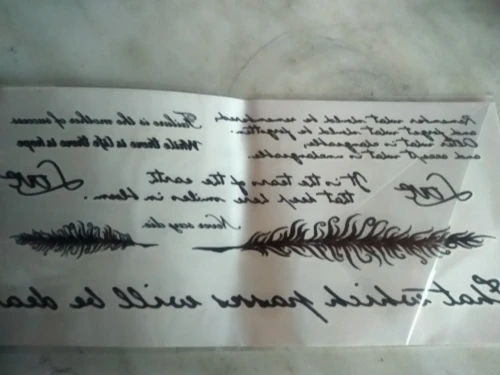 Remember what should be remembered,
and forget what should be forgotten.
Alter what is changeable,
and accept what is unchangeable.
Failure is the mother of success
While there is life there is hope
Love
It is the tears of the earth
that keep here smiles in bloom.
Love
Never say die
That which passes will be dea